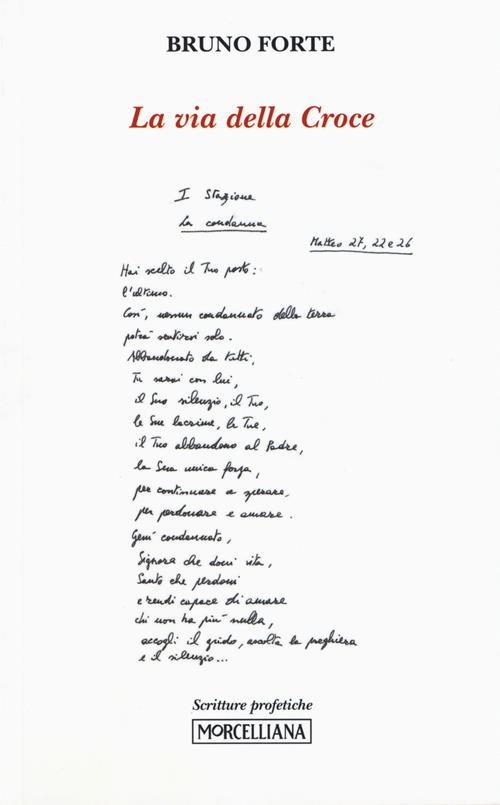 BRUNO FORTE
La via della Croce
I Stazione
La condanna
Matteo 27, 22 e 26
Hai scelto il Tuo posto:
l'ultimo.
Così, nessun condannato della terra
potrà sentirsi solo.
Abbandonato da tutti,
Tu sarai con lui,
il Suo silenzio, il Tuo,
le Sue lacrime, le Tue,
il Tuo abbandono al Padre,
la Sua unica forza,
per continuare a sperare,
per perdonare e amare.
Gesù condannato,
Signore che doni vita,
Santo che perdoni
e rendi capace di amare
chi non ha più nulla,
accogli il grido, ascolta la preghiera
e il silenzio...
Scritture profetiche
MORCELLIANA